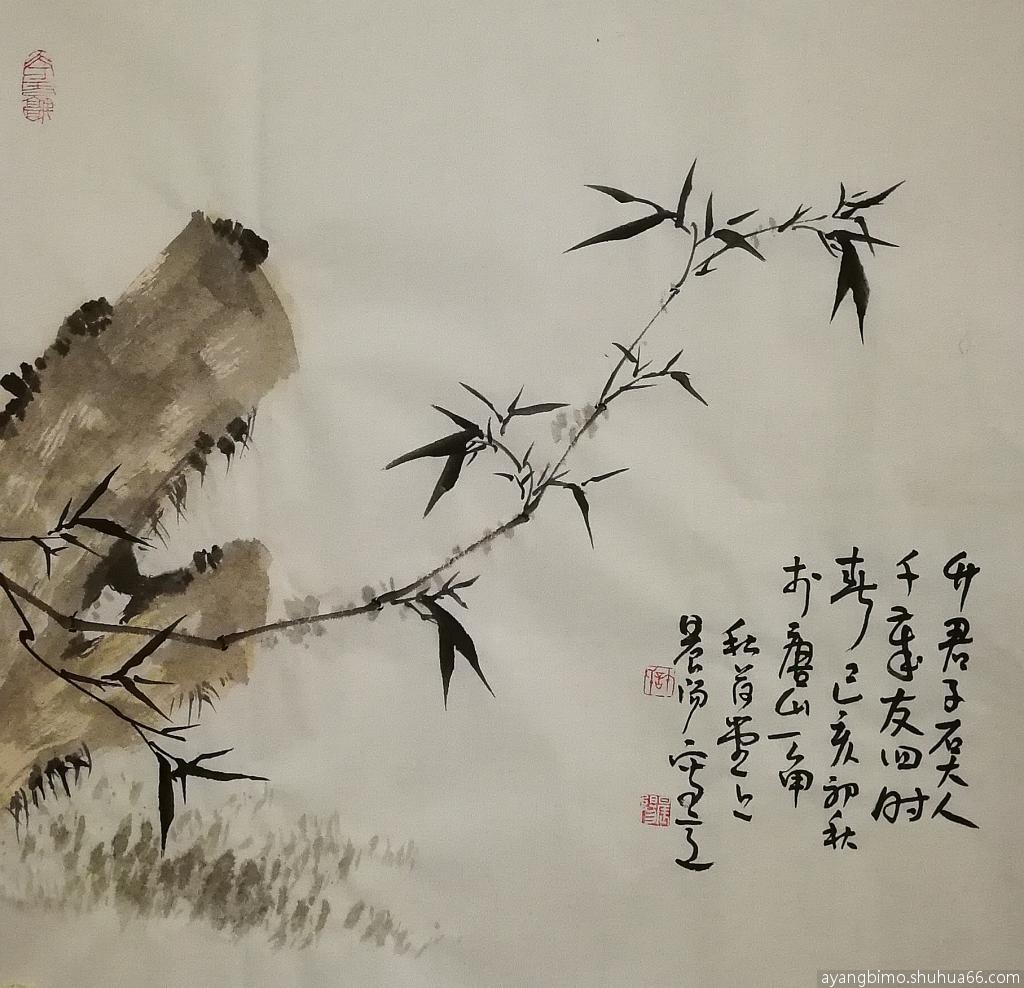 竹君子石大人
千歲友四时
春己亥初秋
於唐山一甲
秋荷堂上
晨阳写
ayangbimo.shuhua66.com